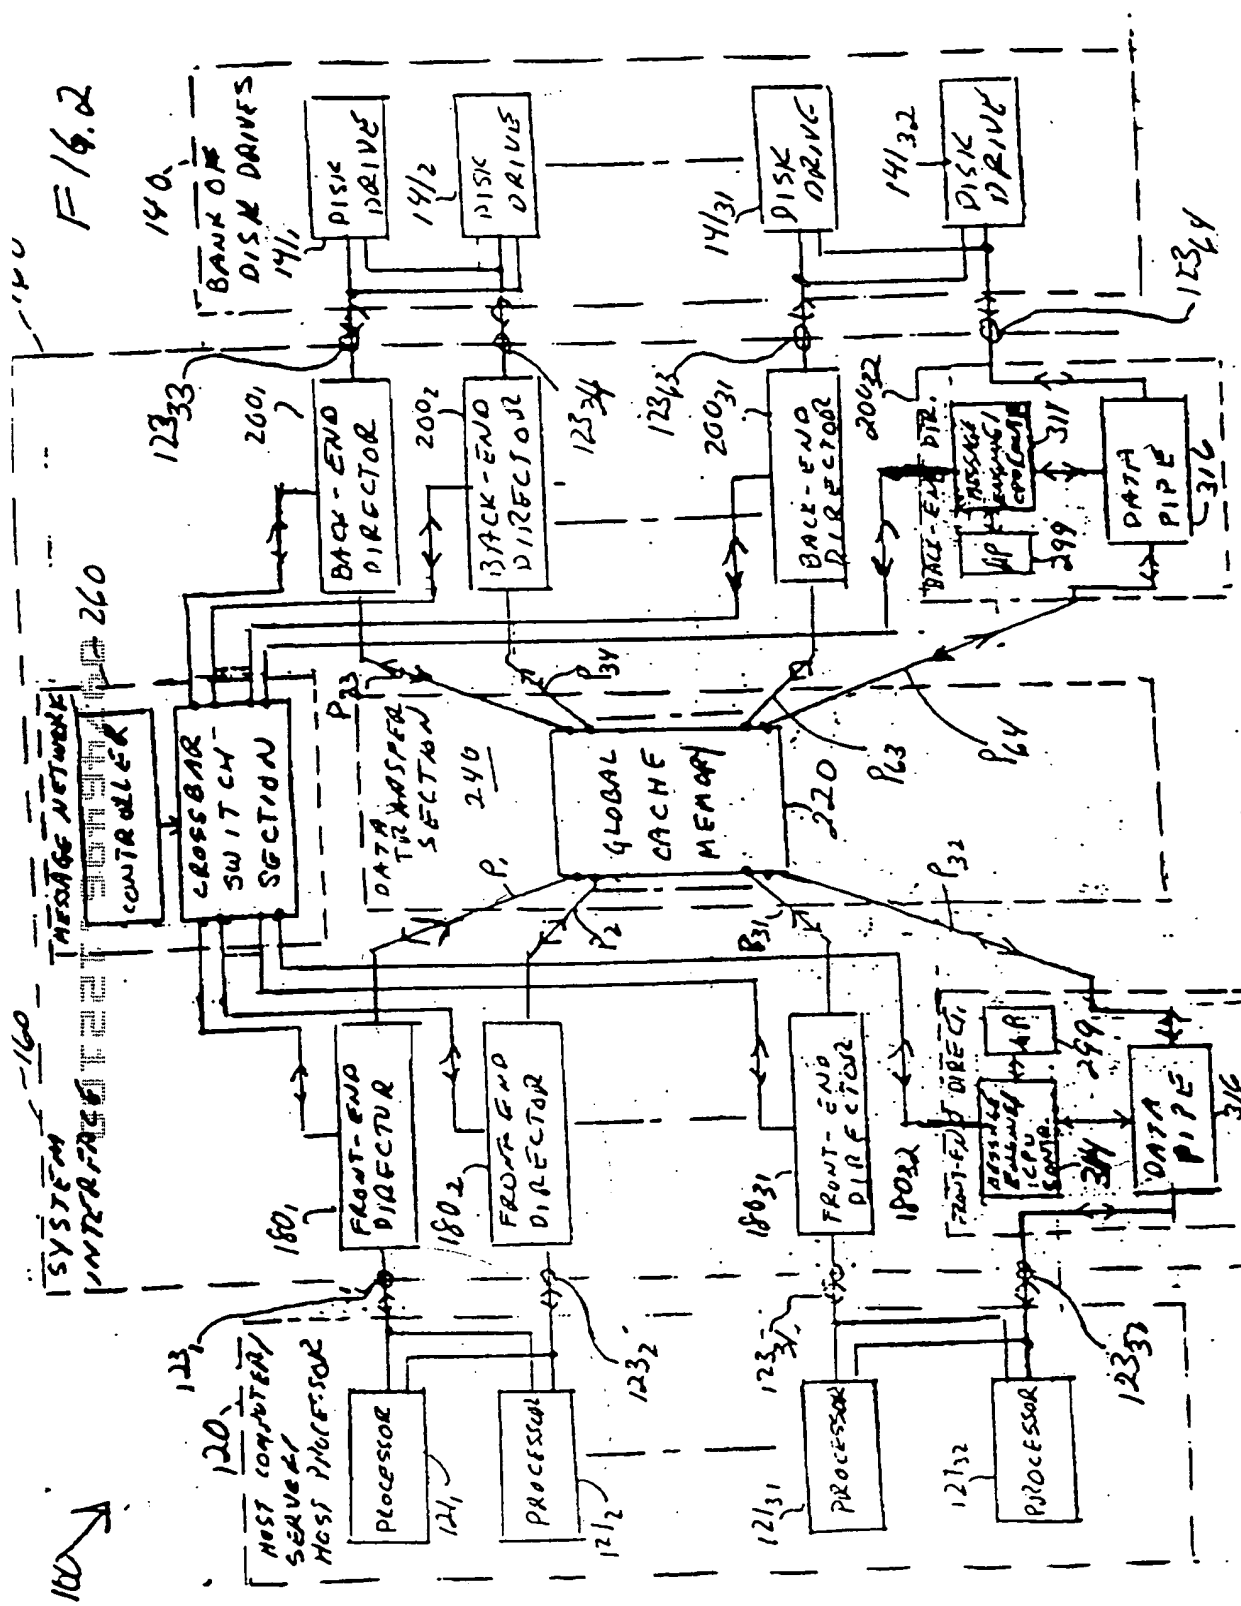 FIG. 2
100
120
HOST COMPUTER/
SERVER/
HOST PROCESSOR
PROCESSOR
121₁
PROCESSOR
121₂
PROCESSOR
121₃₁
PROCESSOR
121₃₂
123₁
123₂
123₃₁
123₃₂
160
SYSTEM
INTERFACE
180₁
FRONT-END
DIRECTOR
180₂
FRONT END
DIRECTOR
180₃₁
FRONT-END
DIRECTOR
180₃₂
FRONT-END DIRECT.
MESSAGE
ENGINE/
CPU
CONTR.
314
μP
299
DATA
PIPE
316
MESSAGE NETWORK
260
CONTROLLER
CROSSBAR
SWITCH
SECTION
DATA
TRANSFER
SECTION
240
GLOBAL
CACHE
MEMORY
220
P₁
P₂
P₃₁
P₃₂
P₃₃
P₃₄
P₆₃
P₆₄
BACK-END
DIRECTOR
200₁
BACK-END
DIRECTOR
200₂
BACK-END
DIRECTOR
200₃₁
200₃₂
BACK-END DIR.
MESSAGE
ENGINE/
μP
299
DATA
PIPE
316
123₃₃
123₃₄
123₆₃
123₆₄
140
BANK OF
DISK DRIVES
141₁
DISK
DRIVE
141₂
DISK
DRIVE
141₃₁
DISK
DRIVE
141₃₂
DISK
DRIVE